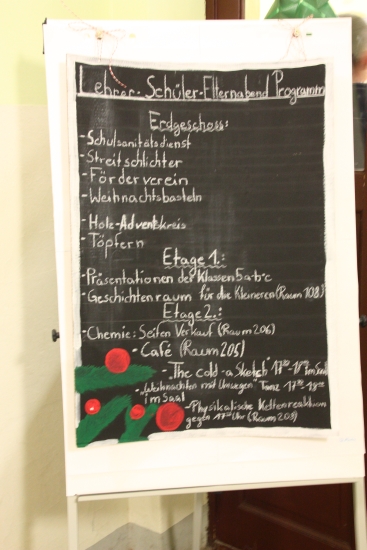 Lehrer-Schüler-Elternabend Programm
Erdgeschoss:
-Schulsanitätsdienst
-Streitschlichter
-Förderverein
-Weihnachtsbasteln
-Holz-Adventskreis
-Töpfern
Etage 1.:
-Präsentationen der Klassen 5a-b-c
-Geschichtenraum für die Kleineren (Raum 108)
Etage 2.:
-Chemie: Seifen Verkauf (Raum 206)
-Café (Raum 205)
-"The cold -a Sketch" im Saal
-"Weihnachten mit Umwegen" Tanz
im Saal
-Physikalische Kettenreaktion
gegen Uhr (Raum 203)